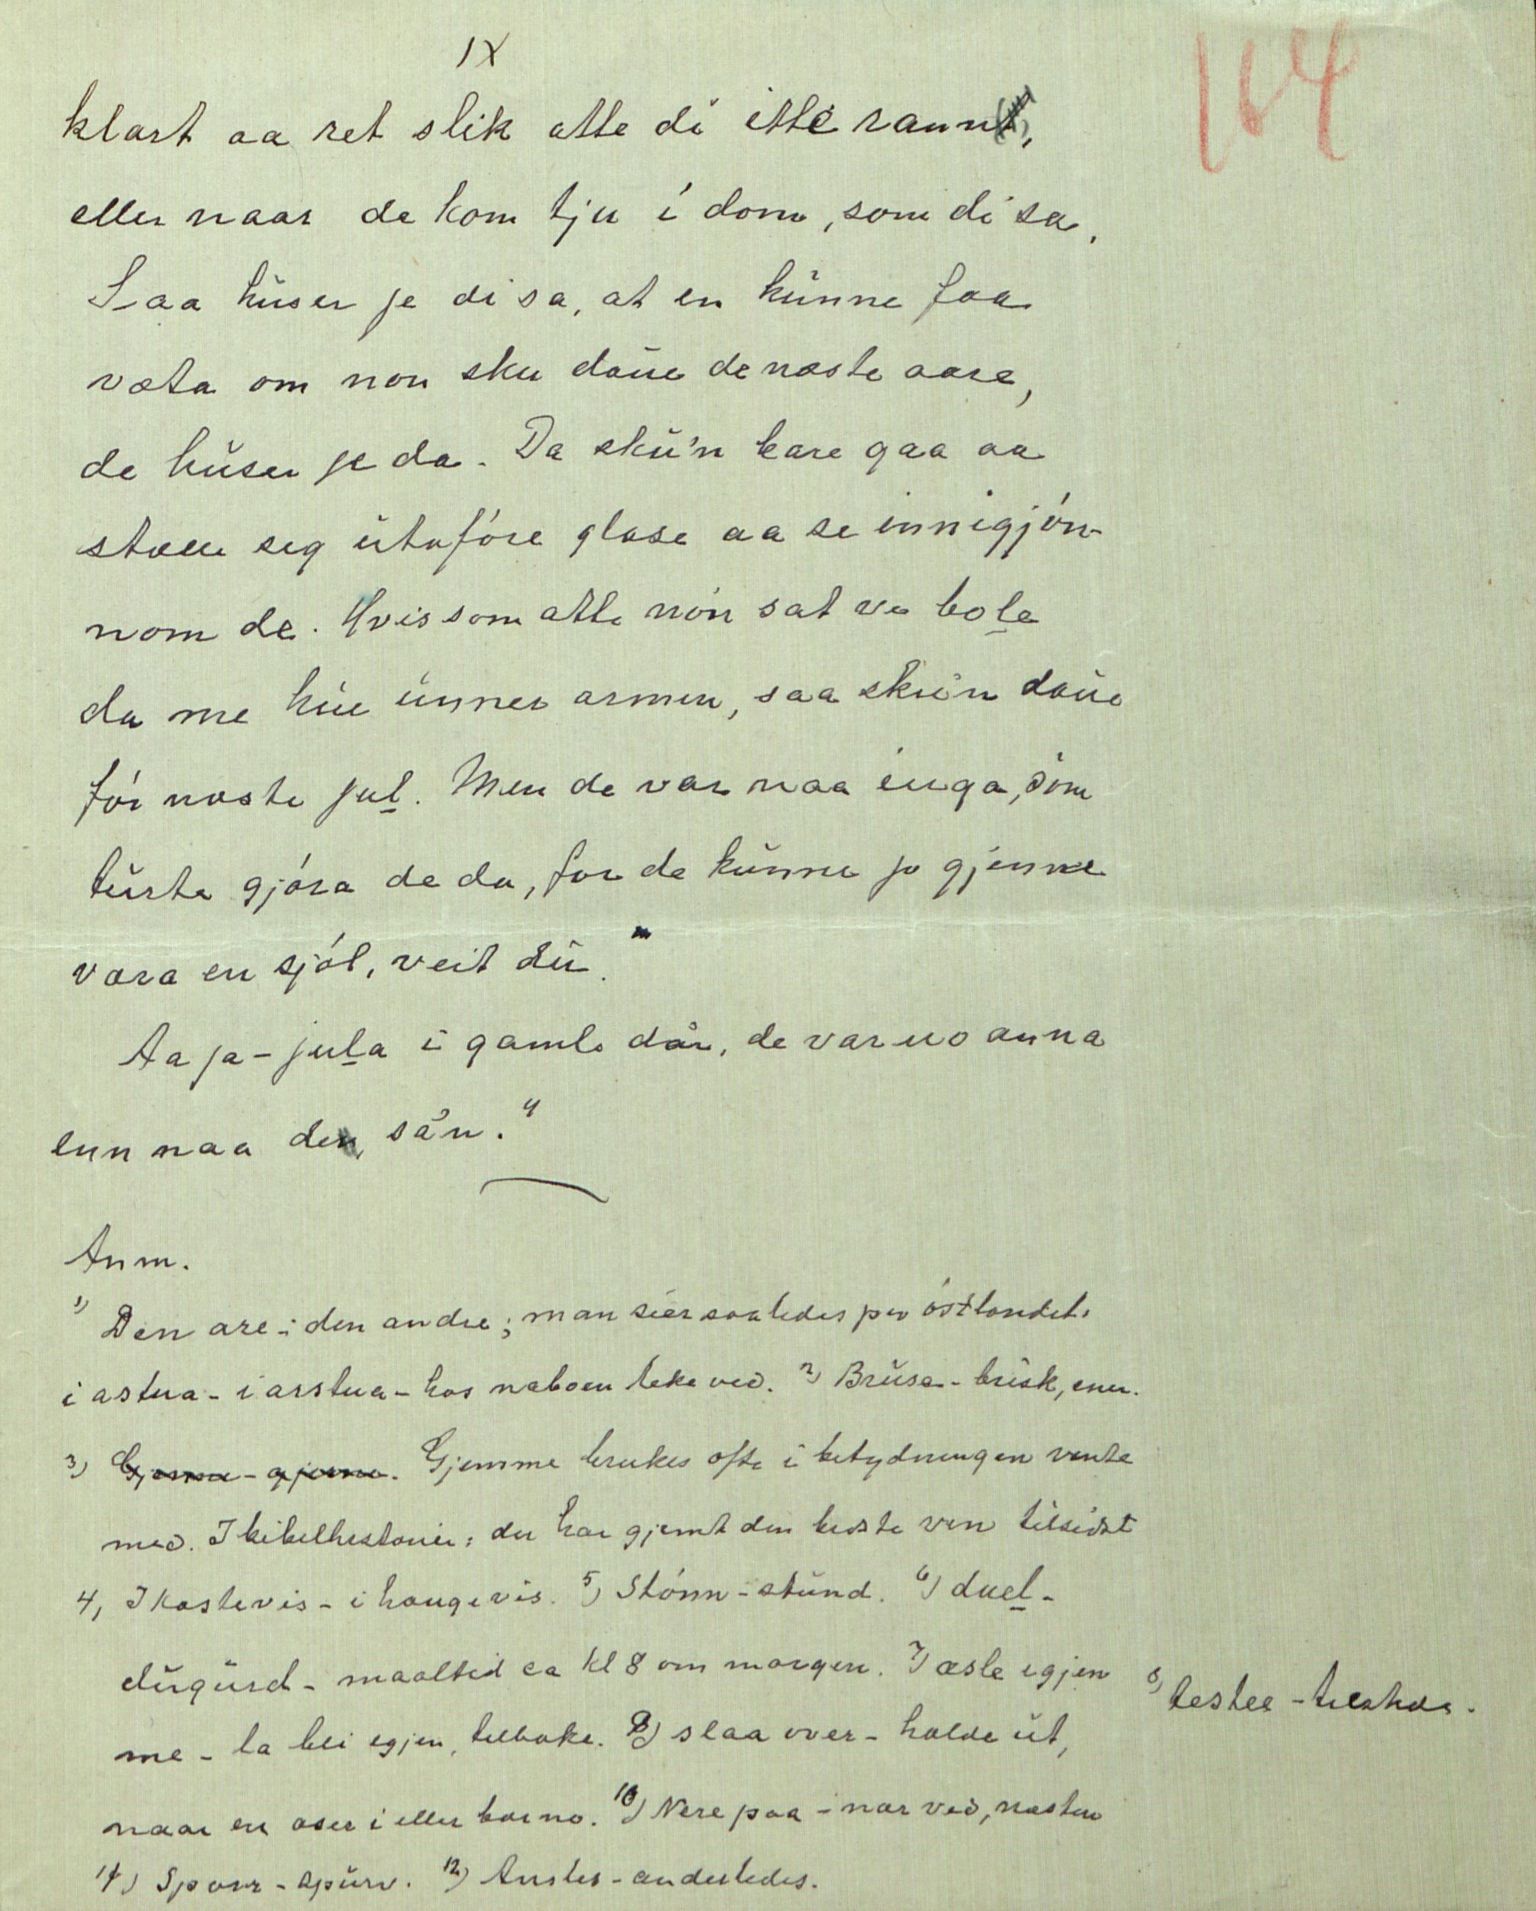 IX
164
klart aa ret slik atte di itte rann,
eller naar de kom tju i dom, som di sa.
Saa hŭser je di sa, at en kŭnne faa
væta om non sku døŭe de næste aare,
de hŭser je da. Da skŭ'n bare gaa aa
stælle seg ŭtaføre glase aa se innigjøn-
nom de. Hvis som atte nón sat ve bole
da me hŭe ŭnner armen, saa skŭ'n døŭe
før næste jul. Men de var naa inga, som
tŭrte gjóra de da, for de kŭnne jo gjenne
væra en sjól, veit dŭ."
Aa ja - jula i gamle dår, de var no anna
enn naa den, sån."
Anm.
1) Den are - i den andre; man sier saaledes paa østlandet:
i astua - i arstua - hos naboen like ved. 2) Brŭse - brŭsk, ener.
3) Gjemme brukes ofte i betydningen vente
med. I bibelhistorien: du har gjemt den beste vin tilsidst
4) I kastevis - i haugevis. 5) Stónn - stŭnd. 6) duel -
dŭgŭrd - maaltid ca kl 8 om morgen. 7) æsle igjen
me - la bli igjen, tilbake. 8) testee - tilstede.
9) slaa over - holde ŭt,
naar en øser i eller bær no. 10) Nere paa - nær ved, næsten
11) Sporr - spŭrv. 12) Ansles - anderledes.